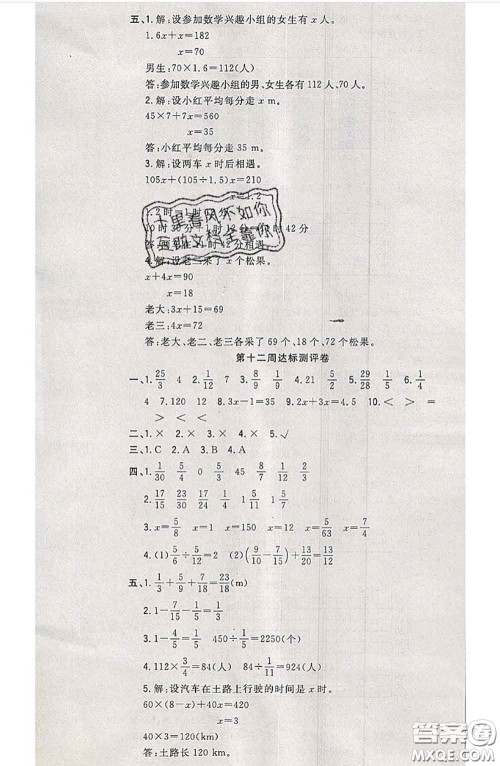 五、1. 解:设参加数学兴趣小组的女生有 x 人。
1.6x+x=182
x=70
男生:70×1.6=112(人)
答:参加数学兴趣小组的男、女生各有 112 人、70 人。
2. 解:设小红平均每分走 x m。
45×7+7x=560
x=35
答:小红平均每分走 35 m。
3. 解:设两车 x 时后相遇。
105x+(105÷1.5)x=210
x=1.2
1.2 时=1 时
10 时 30 分 1 时 12 分 时 42 分
4. 解:设老二采了 x 个松果。
x+4x=90
x=18
老大:3x+15=69
老三:4x=72
答:老大、老二、老三各采了 69 个、18 个、72 个松果。
第十二周达标测评卷
一、1. 25/3 4 1/12 7 2. 1/9 3. 3/5 4. 2/15 5. 29/28 6. 1/4
4 7. 120 12 8. 3x-x 9. 2x+3=4.5 10. < > =
> < >
二、1. × 2. × 3. × 4. × 5. √
三、1. C 2. A 3. B 4. A
四、1. 1/30 5/4 0 45 8/7 1/12 2/5
2. 17/15 23/30 17/24 1 1/2 5/9
3. x=5/8 x=1 x=150 x=5/12 x=5/63 x=7/4
4. (1) 5/6÷5/2=2 (2) (9/10-7/15)+1/3
五、1. 1/3+5/9+7/18=23/18(m)
2. 1-7/15-1/3=1/5
3. 1-4/5=1/5 450÷1/5=2250(个)
4. 112×3/4=84(人) 84÷1/11=924(人)
5. 解:设汽车在土路上行驶的时间是 x 时。
60×(8-x)+40x=420
x=3
40×3=120(km)
答:土路长 120 km。
答案圈
MXQE.COM